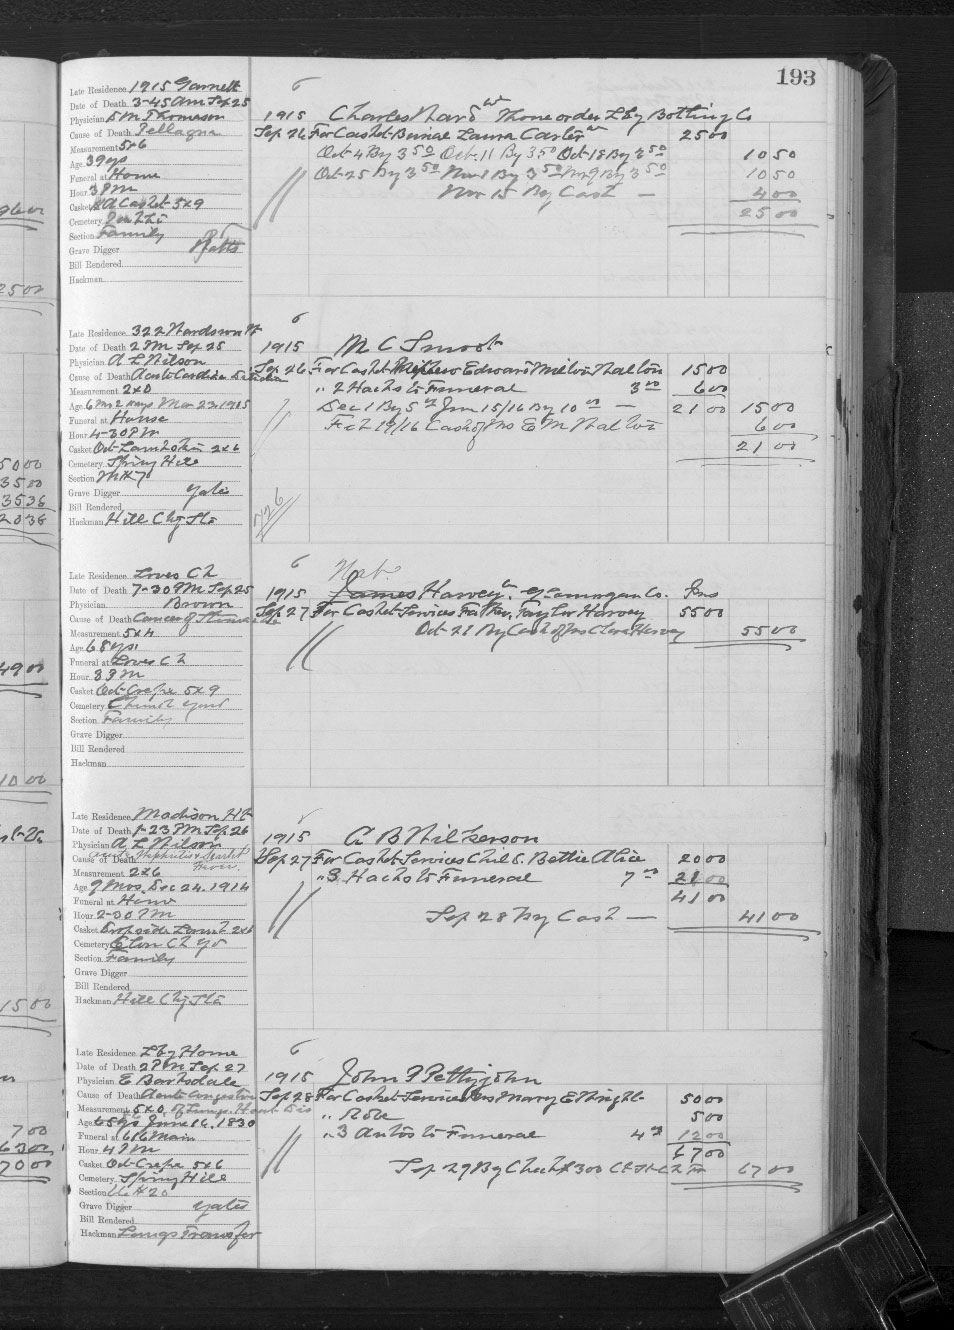 193
Late Residence 1915 Garnett
Date of Death 3-45 am Sep 25
Physician Thomason
Cause of Death Pellagra
Measurement 5x6
Age 39 yrs
Funeral at Home
Hour 3 PM
Casket Casket 5x9
Cemetery
Section Family
Grave Digger
Bill Rendered
Hackman
6
1915 Charles Ward Phone order Lbg Bottling Co
Sep 26 For Casket Burial Laura Carter 25 00
Oct 4 By 3 50 Oct 11 By 3 50 Oct 18 By 3 50 10 50
Oct 25 By 3 50 Nov 1 By 3 50 Nov 9 By 3 50 10 50
Nov 15 By Cash — 4 00
25 00
Late Residence 322
Date of Death 2 PM Sep 25
Physician A L Wilson
Cause of Death Acute Cardiac
Measurement 2x0
Age 6 Mos 2 days Mar 23, 1915
Funeral at House
Hour 4-30 PM
Casket Oct 2x6
Cemetery Spring Hill
Section
Grave Digger Yates
Bill Rendered
Hackman Hill Cky Sta
6
1915 M C Smoot
Sep 26 For Casket Nephew Edward Melvin Walton 15 00
" 2 Hacks to Funeral 3 00 6 00
Dec 1 By 5 00 Jan 15/16 By 10 00 — 21 00 15 00
Feb 19/16 Cash of Mrs E M Walton 6 00
21 00
Late Residence Loves Ch
Date of Death 7-30 PM Sep 25
Physician Brown
Cause of Death Cancer of Stomach
Measurement 5x4
Age 68 yrs
Funeral at Loves Ch
Hour 3 PM
Casket Oct Crepe 5x9
Cemetery Church yard
Section Family
Grave Digger
Bill Rendered
Hackman
6
1915 James Harvey
Sep 27 For Casket Services Father, Taylor Harvey 55 00
Oct 28 By Cash of Mrs Clara Harvey 55 00
Late Residence Madison Ht
Date of Death 1-23 PM Sep 26
Physician A L Wilson
Cause of Death acute Nephritis & Scarlet Fever
Measurement 2x6
Age 9 Mos. Dec 24, 1914
Funeral at Home
Hour 2-30 PM
Casket Dropside Lamb 2x6
Cemetery Elon Ch yd
Section Family
Grave Digger
Bill Rendered
Hackman Hill Cky Sta
1915 A B Wilkerson
Sep 27 For Casket Services Child, Bettie Alice 20 00
" 3 Hacks to Funeral 7 00 21 00
41 00
Sep 28 By Cash — 41 00
Late Residence Lbg Home
Date of Death 2 PM Sep 27
Physician E Barksdale
Cause of Death Acute Congestion
Measurement 5x0 of Lungs, Heart Dis
Age 85 yrs June 16, 1830
Funeral at 616 Main
Hour 4 PM
Casket Oct Crepe 5x6
Cemetery Spring Hill
Section
Grave Digger Yates
Bill Rendered
Hackman Langs Transfer
6
1915 John P Pettyjohn
Sep 28 For Casket Services Mrs Mary E Wright 50 00
" Robe 5 00
" 3 Autos to Funeral 4 00 12 00
67 00
Sep 29 By Check 67 00